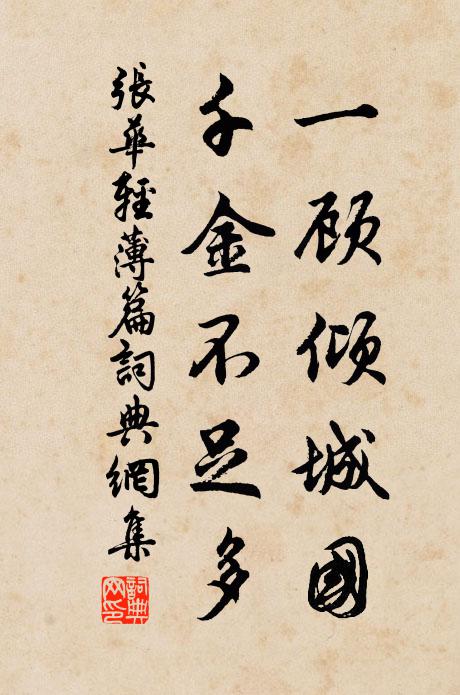 一顾倾城國
千金不足多
張華輕薄篇詞典網集
詞典
网印